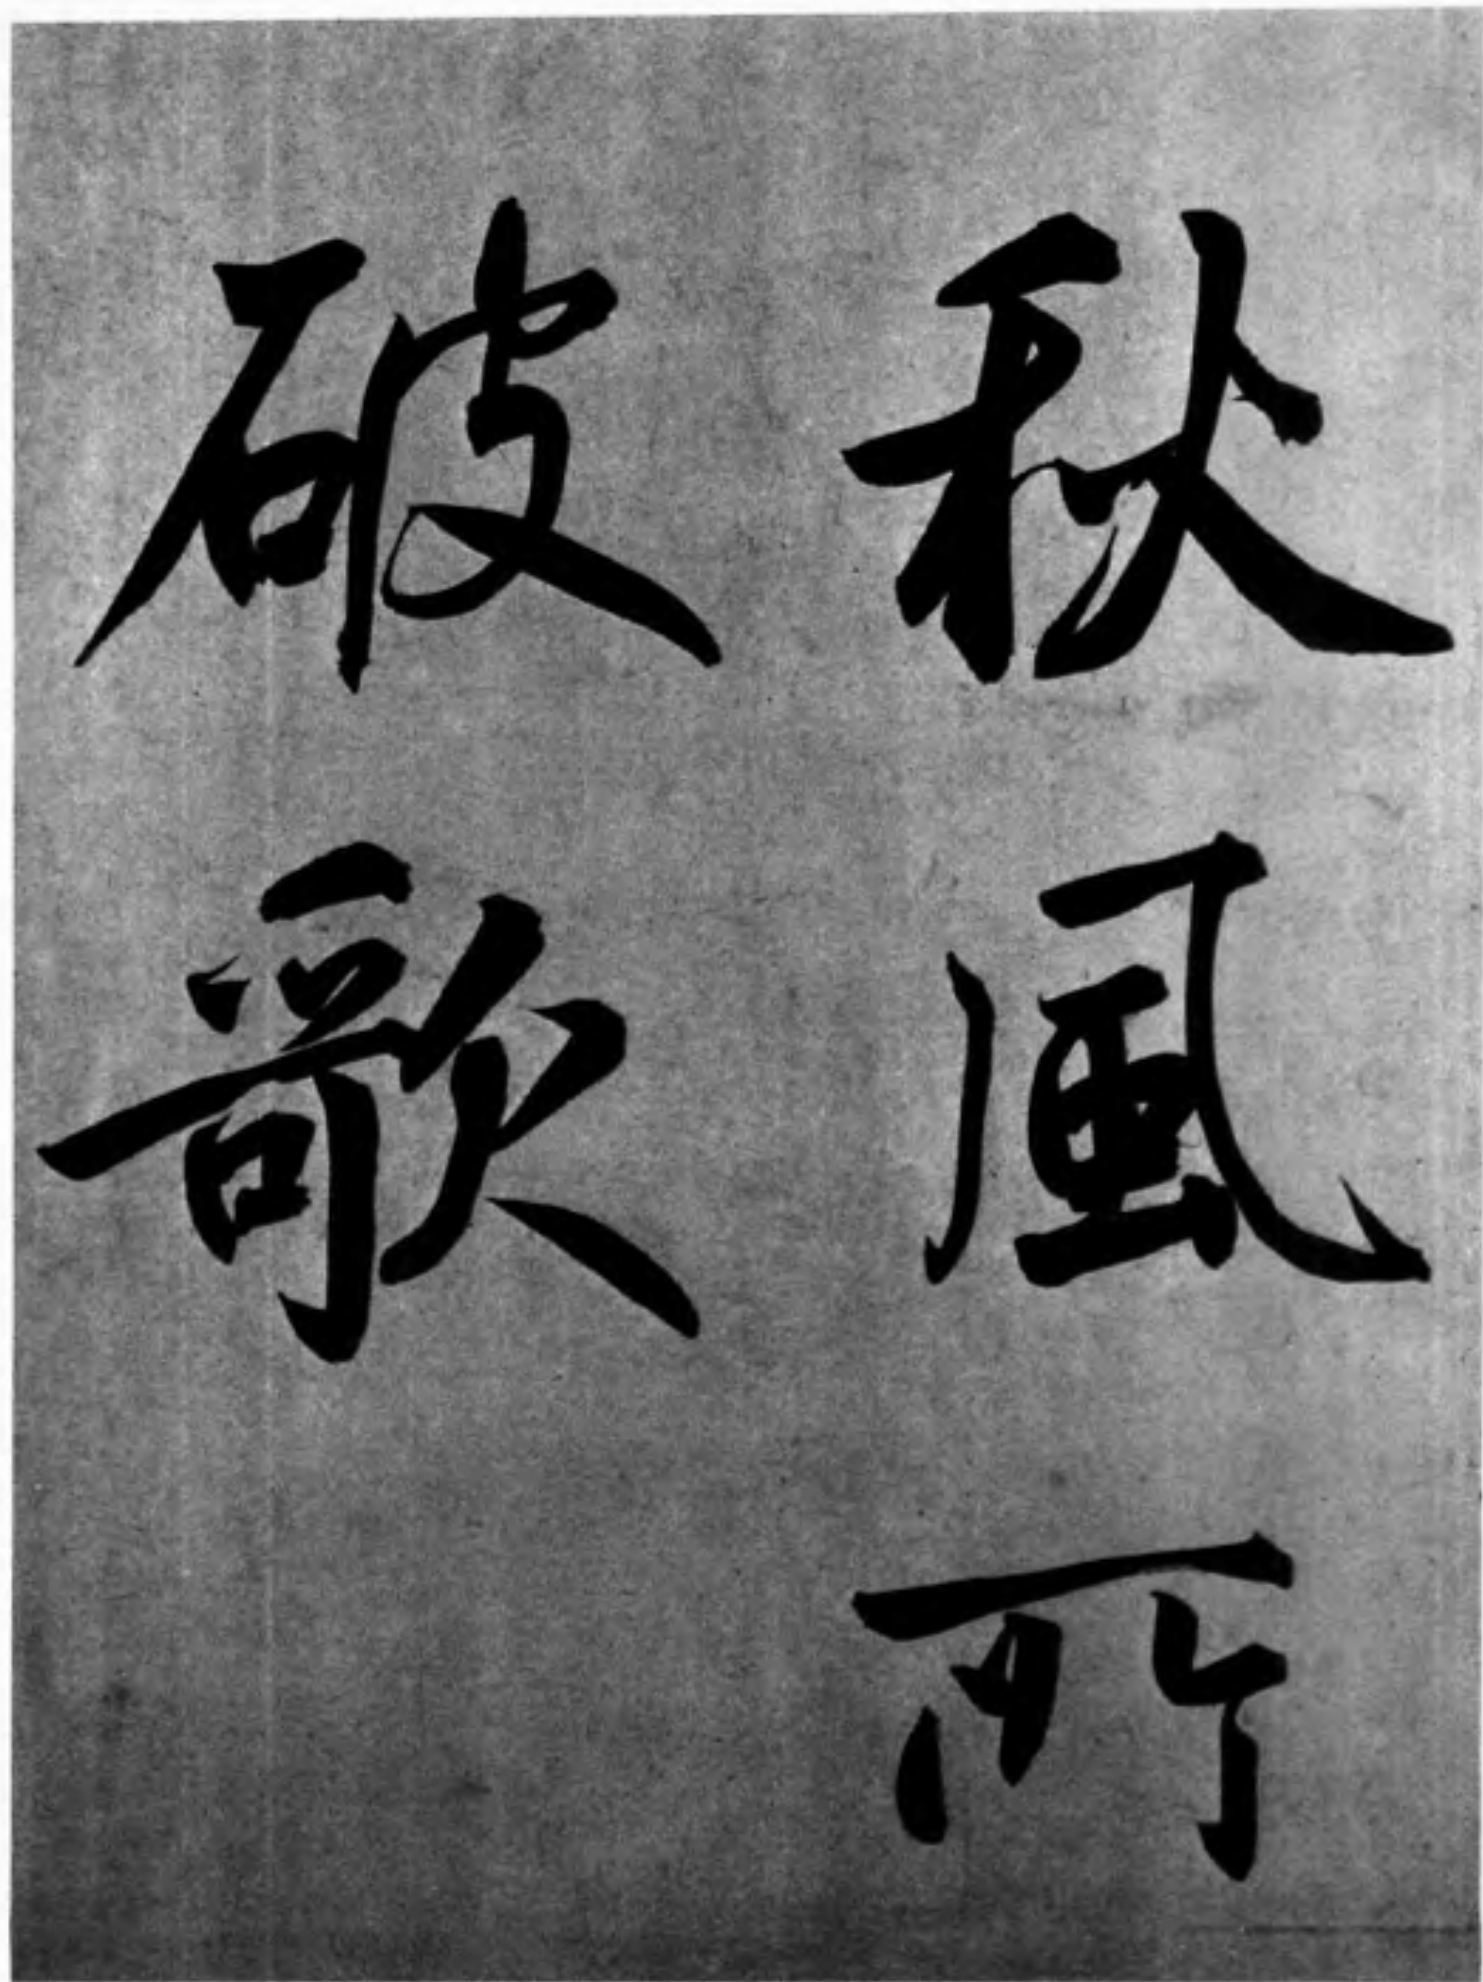 秋風所
破歌